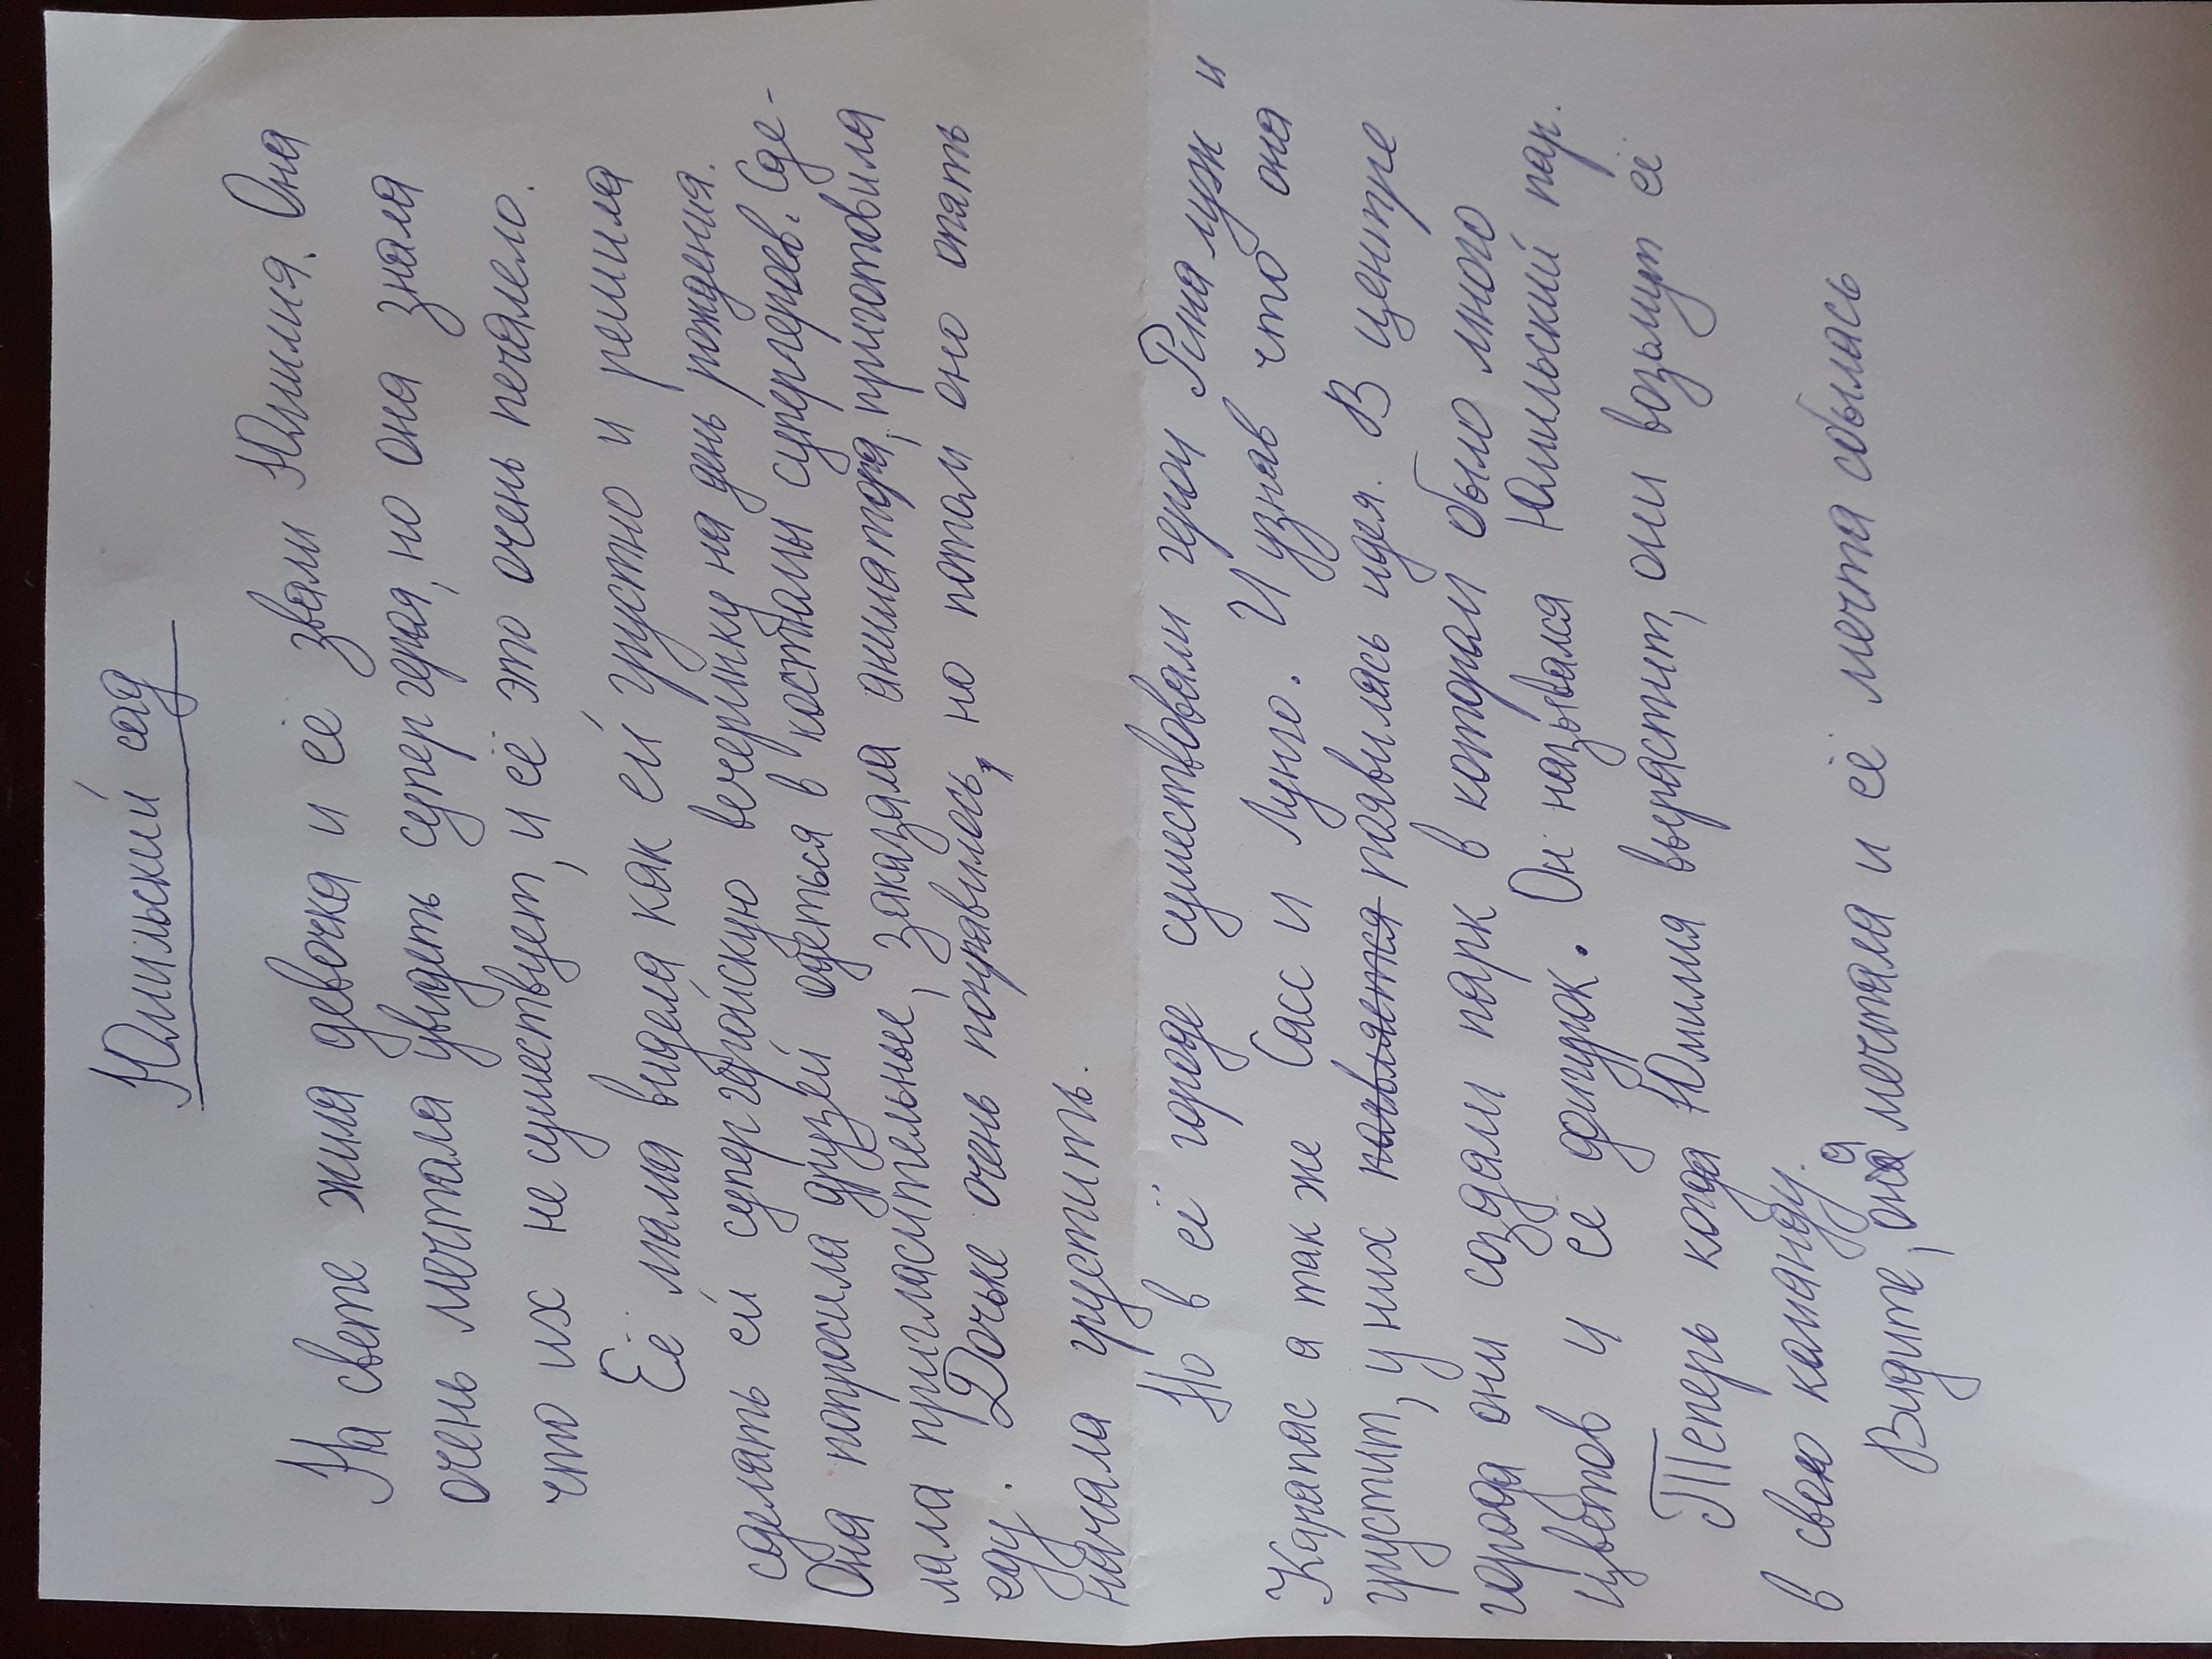 Юмильский сад
На свете жила девочка и её звали Юмилия. Она
очень мечтала увидеть супер героя, но она знала
что их не сушествует, и её это очень печалело.
Её мама видела как ей грустно и решила
сделать ей супер геройскую вечеринку на день рождения.
Она попросила друзей одеться в костюмы супергероев. Сде-
лала пригласительные, заказала аниматора, приготовила
еду. Дочьке очень понравилось, но потом оно опять
начала грустить.
Но в её городе сушествовали герои Рена луж и
Карапас а так же Сасс и Лунго. И узнав что она
грустит, у них паявляется паявилась идея. В центре
города они создали парк в котором было много
цветов и её фигурок. Он назывался Юмильский пар.
Теперь когда Юмилия вырастит, они возьмут её
в свою команду.
Видите, она я мечтала и её мечта сбылась